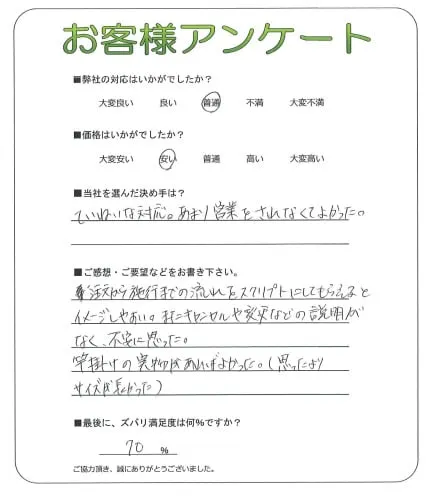 お客様アンケート
■弊社の対応はいかがでしたか？
大変良い 良い 普通 不満 大変不満
■価格はいかがでしたか？
大変安い 安い 普通 高い 大変高い
■当社を選んだ決め手は？
ていねいな対応。あまり営業をされなくてよかった。
■ご感想・ご要望などをお書き下さい。
注文から施行までの流れをスクリプトにしてもらえると
イメージしやすい。またキャンセルや変更などの説明が
なく、不安に思った。
竿掛けの実物があればよかった。(思ったより
サイズが長かった)
■最後に、ズバリ満足度は何％ですか？
70 %
ご協力頂き、誠にありがとうございました。